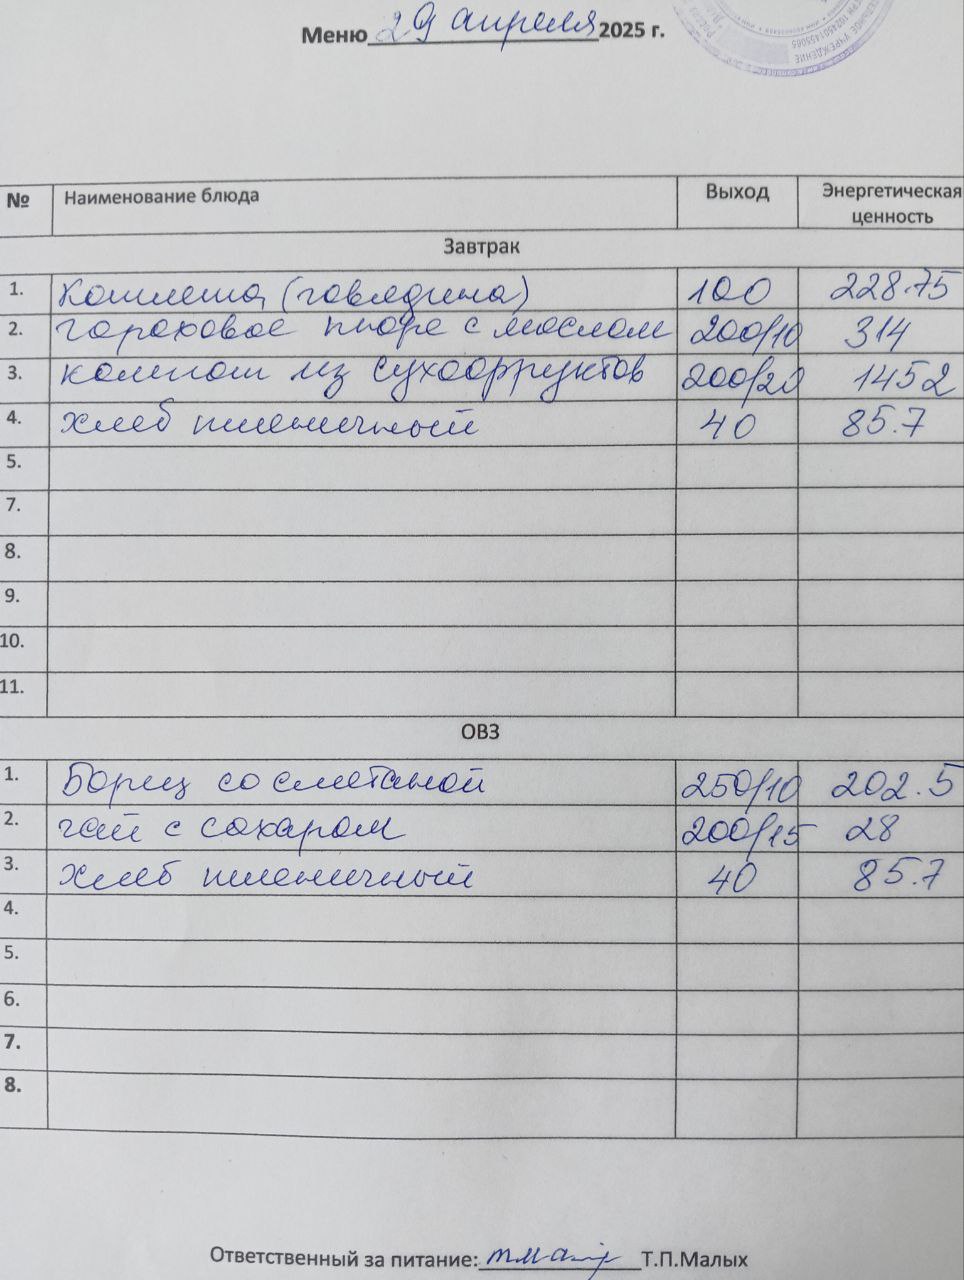 Меню 29 апреля 2025 г.
УЧРЕЖДЕНИЕ
№ Наименование блюда Выход Энергетическая ценность
Завтрак
1. Котлета (говядина) 100 228.75
2. гороховое пюре с маслом 200/10 314
3. компот из сухофруктов 200/20 1452
4. хлеб пшеничный 40 85.7
5.
7.
8.
9.
10.
11.
ОВЗ
1. Борщ со сметаной 250/10 202.5
2. чай с сахаром 200/15 28
3. хлеб пшеничный 40 85.7
4.
5.
6.
7.
8.
Ответственный за питание: Т.П.Малых